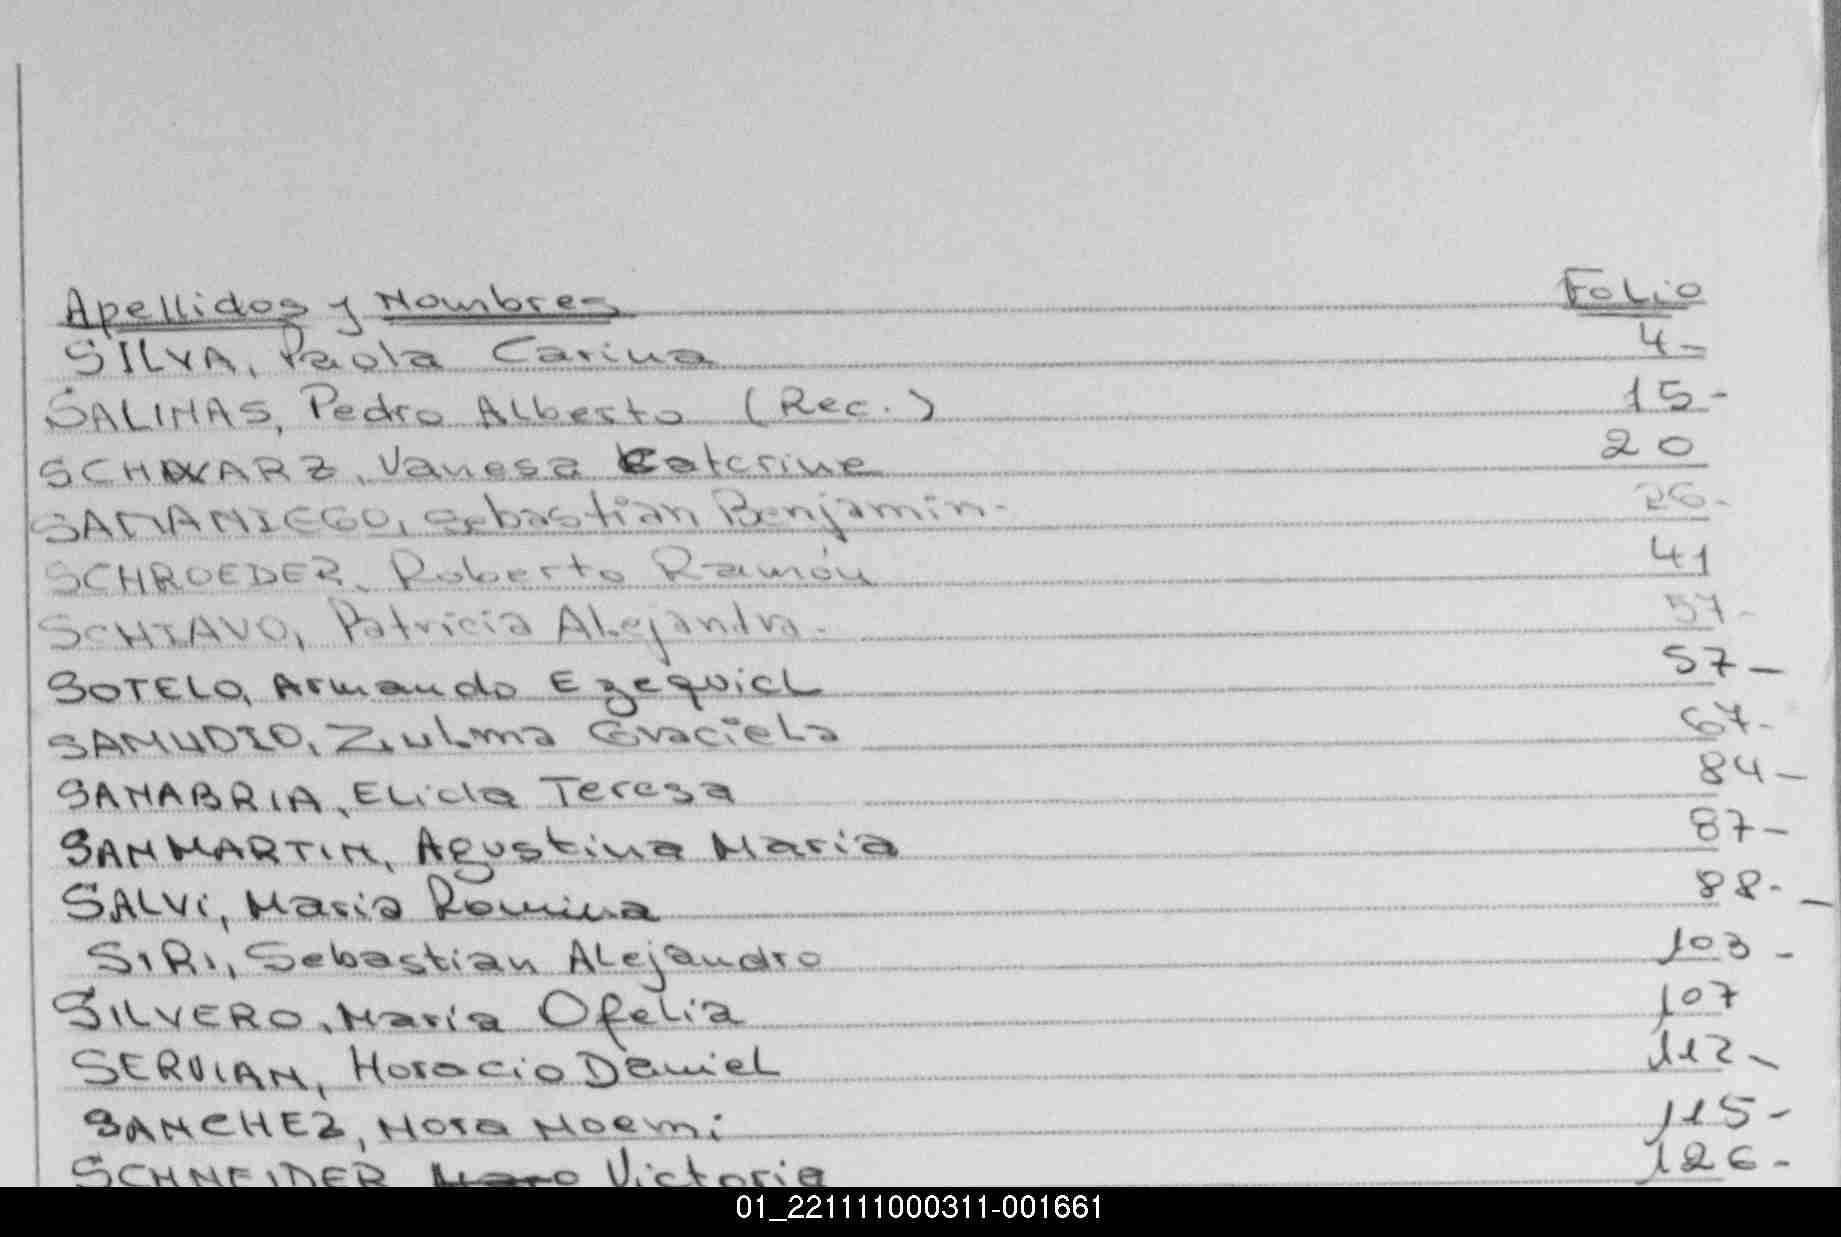 Apellidos y Nombres Folio
SILVA, Paola Carina 4-
SALINAS, Pedro Alberto (Rec.) 15-
SCHWARZ, Vanesa Caterine 20
SAMANIEGO, Sebastian Benjamin- 26-
SCHROEDER, Roberto Ramón 41
SCHIAVO, Patricia Alejandra- 57-
SOTELO, Armando Ezequiel 57-
SAMUDIO, Zulma Graciela 67-
SANABRIA, Elida Teresa 84-
SANMARTIN, Agustina Maria 87-
SALVI, Maria Romina 88-
SIRI, Sebastian Alejandro 103-
SILVERO, María Ofelia 107
SERVIAN, Horacio Daniel 112-
SANCHEZ, Nora Noemi 115-
SCHNEIDER Victoria 126-
01_221111000311-001661